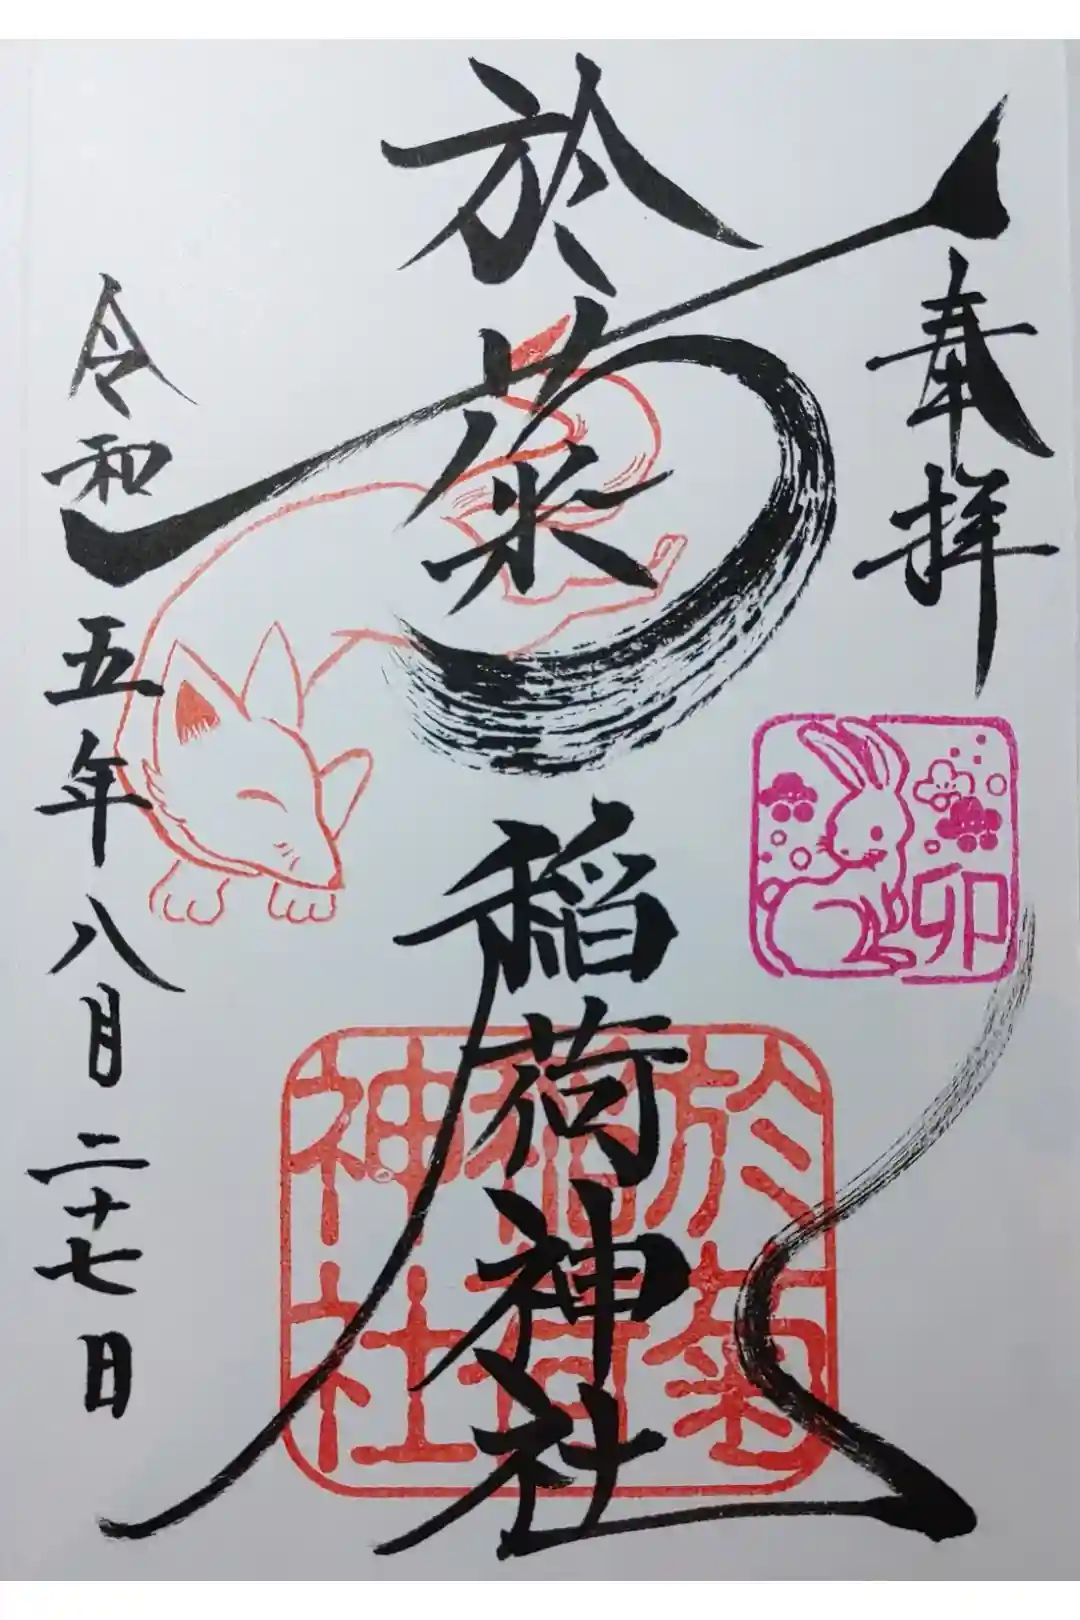 奉拝
於菊稲荷神社
令和五年八月二十七日
卯
於菊
稲荷
神社